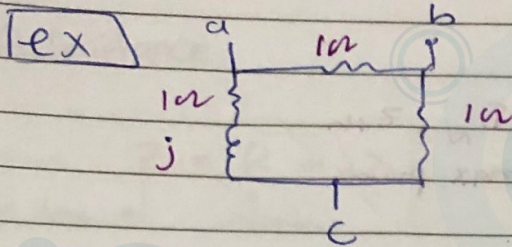 ex
a
b
1Ω
1Ω
1Ω
j
c